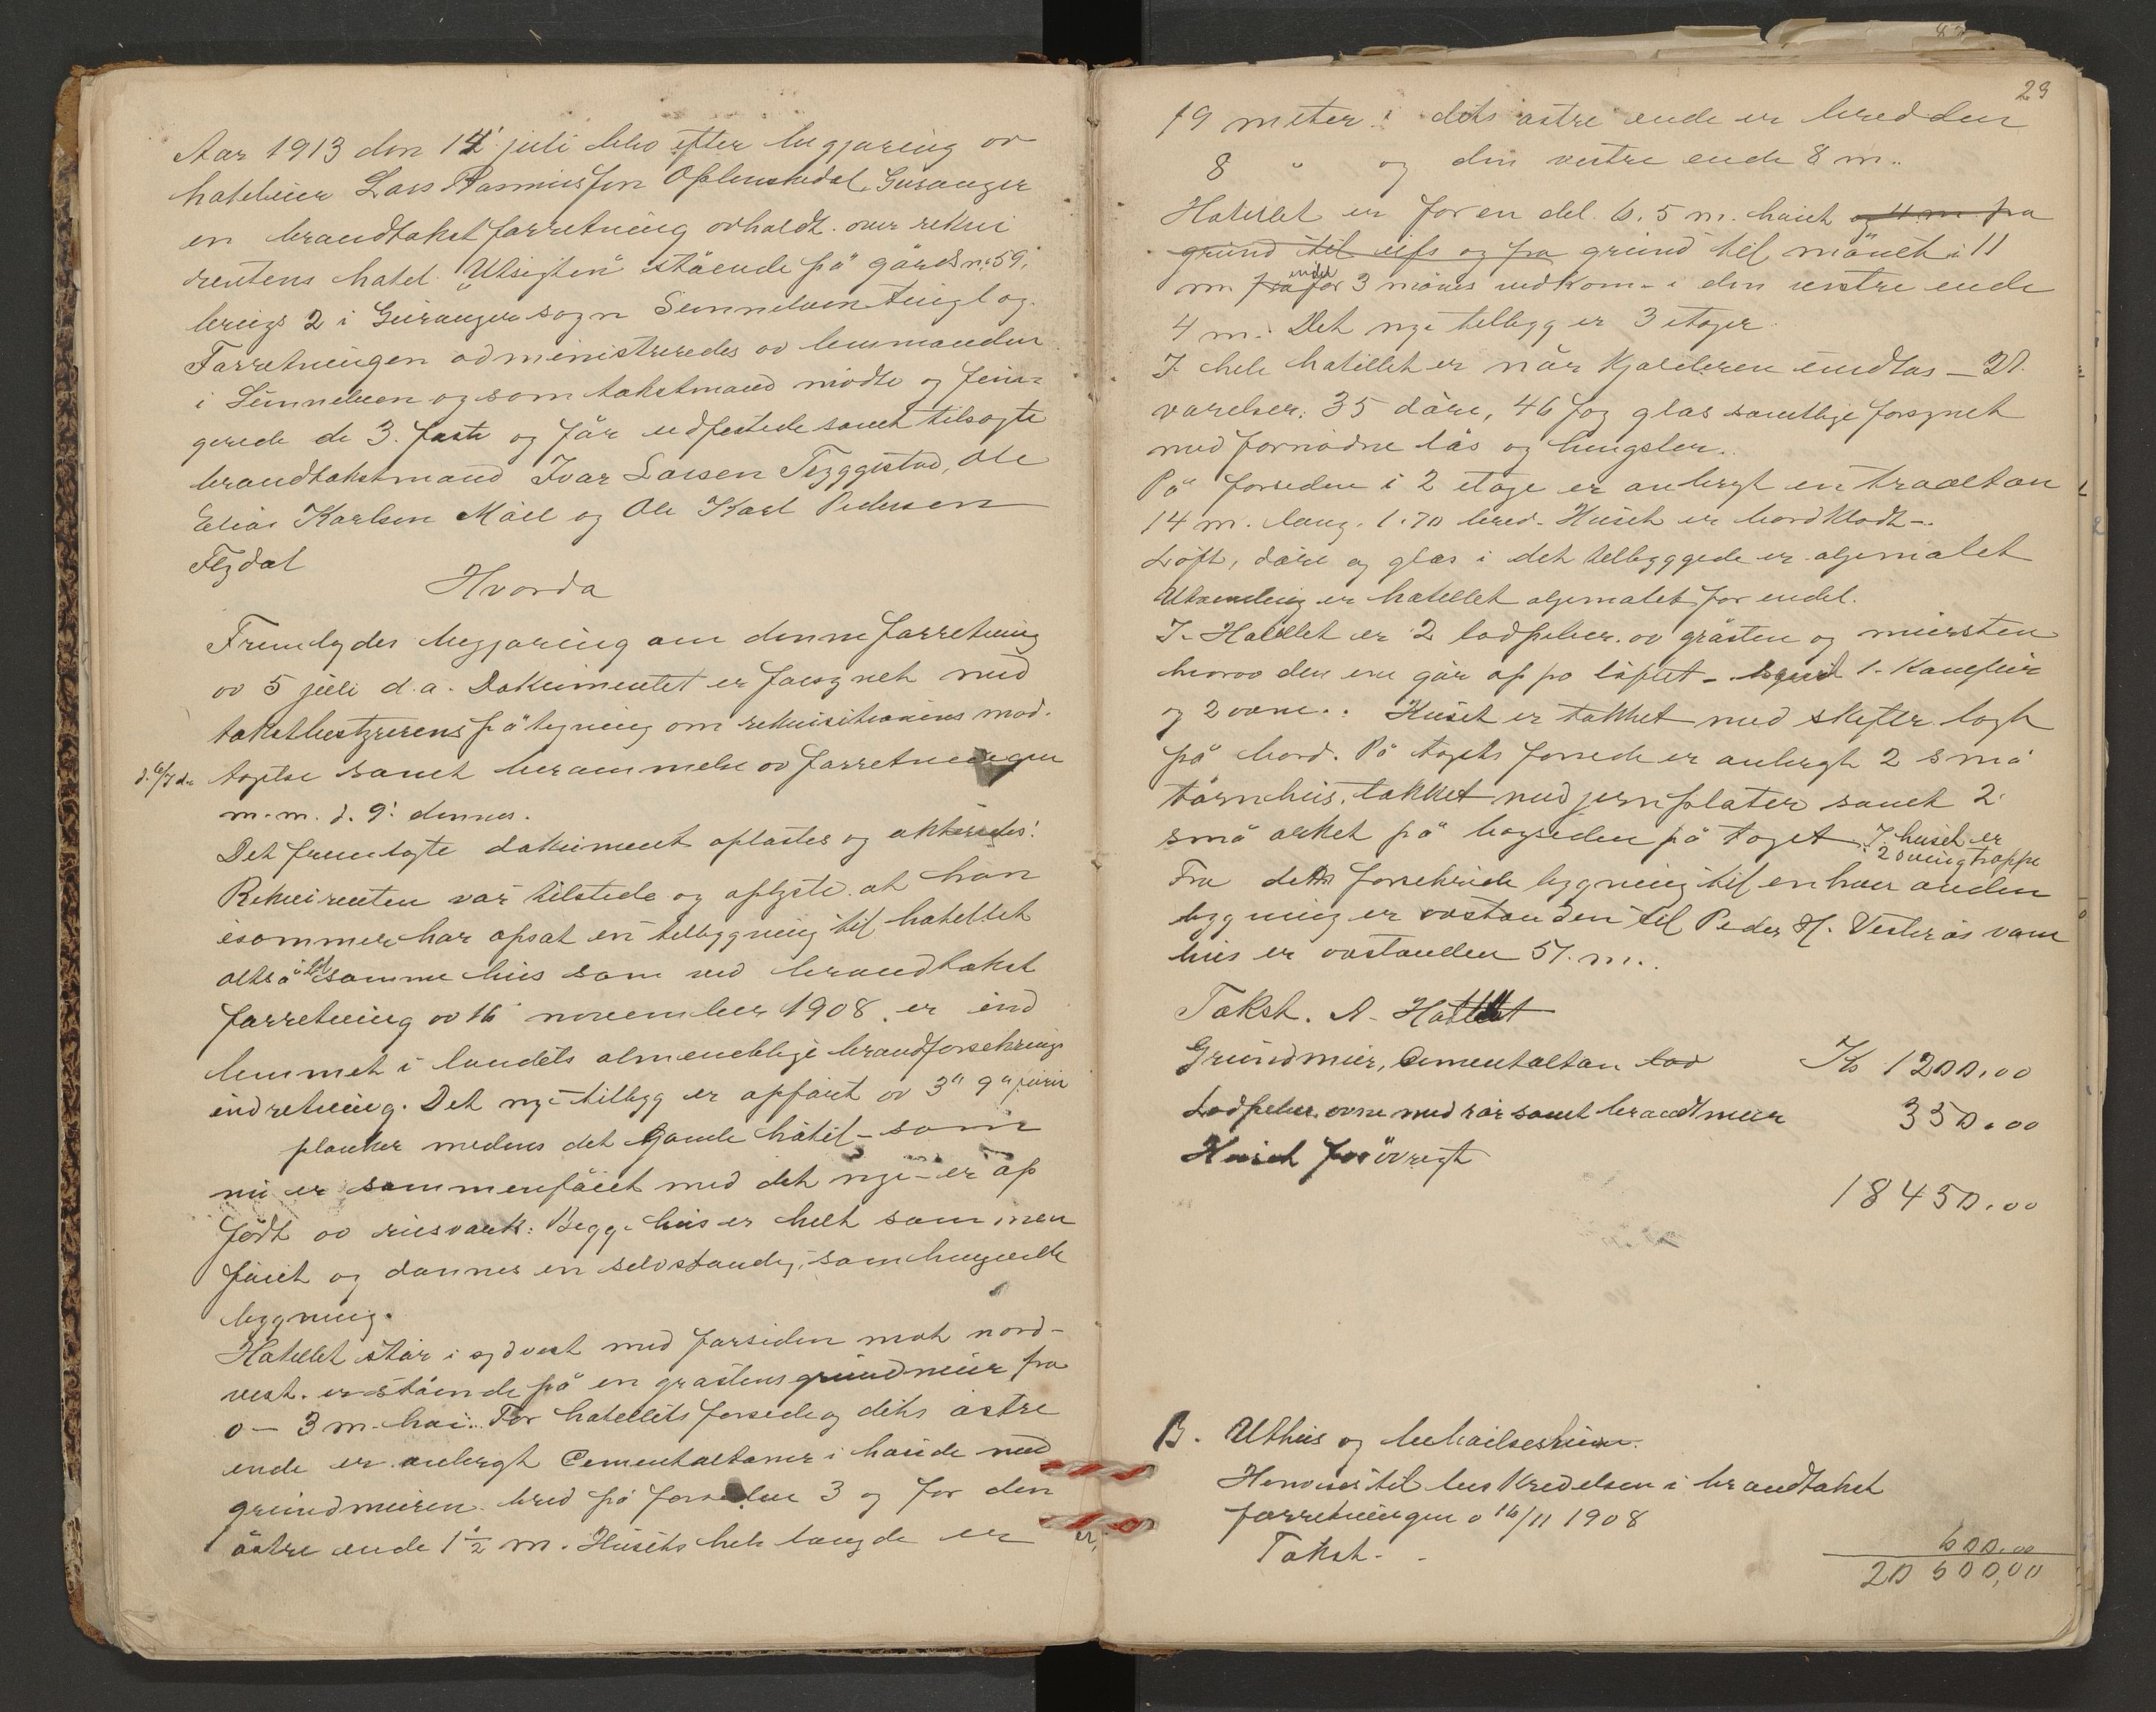 Aar 1913 den 14' juli blev efter begjæring ov
hoteleier Lars Rasmussen Opplenskedal, Geiranger
en brandtakstforretning ovholdt over rekvi
rentens hotel "Utsigten" stående på gårds no 59,
brugs 2 i Geiranger sogn Sunnelven tinglag.
Forretningen administreredes ov lensmanden
i Sunnelven og som takstmænd mødte og fun-
gerede de 3 faste og før udpestede samt tilsagte
brandtakstmænd Ivar Larsen Tryggestad, Ole
Elias Karlsen Måll og Ole Karl Pedersen
Flydal
Hvorda
Fremlagdes begjæring om denne forretning
ov 5 juli d.a. Dokumentet er forsynet med
takstbestyrerens påtegning om rekvisitionens mod-
d. 6/7 d.a. tagelse samt berammelse ov forretningen
m.m. d. 9' dennes.
Det fremlagte dokument oplæstes og akteredes.
Rekvirenten var tilstede og oplyste at han
isommer har opsat en tilbygning til hotellet
altså samme hus som ved brandtakst
forretning ov 16 november 1908 er ind
lemmet i landets almendelige brandforsekrings
indretning. Det nye tilbygg er opført ov 3" 9" furu
planker medens det gamle hotel - som
nu er sammenføiet med det nye - er op
ført ov reisverk. Begge hus er helt sammen
føiet og dannes en selvstændig, sam hengende
bygning.
Hotellet står i sydvest med forsiden mot nord-
vest. er stående på en gråstens grundmur fra
0 - 3 m. høi. For hotellets forside og dets østre
ende er anbragt Cementaltaner i høide med
grundmuren bred på forsiden 3 og for den
østre ende 1 1/2 m. Husets hele længde er
29
19 meter i dets østre ende er bredden
8 " og den vestre ende 8 m.
Hotellet er for en del 6.5 m. høiet og 4 m. fra
grund til ufs og fra grund til mønet i 11
m fra for 3 mønes vedkom- i den vestre ende
4 m. Det nye tilbygg er 3 etager.
I hele hotellet er når kjælderen undtas - 28
værelser, 35 døre, 46 fag glas samtlige forsynet
med fornødne lås og hengsler.
På forsiden i 2 etage er anbragt en træaltan
14 m. lang. 1.70 bred. Huset er bordklædt -.
Loft, døre og glas i det tilbyggede er oljemalet
Utvendig er hotellet oljemalet for endel.
I Hotellet er 2 lodpiber ov gråsten og mursten
hvorav den ene går op på loftet - 1. Komfur
og 2 ovne. Huset er tækket med skifer lagt
på bord. På tagets forside er anbragt 2 små
tårnhus, tækket med jernplater samt 2
små arket på bagsiden på taget. I huset er
2 svingtrappe
Fra dette forsekrede bygning til enhver anden
bygning er ovstanden til Peder H. Vesterås vaan
hus er ovstanden 57. m.
Takst. A - Hotellet
Grundmur, Cementaltan lod Kr 1200.00
Lodpiber ovne med rør samt brandmur 350.00
Huset forøvrigt
18450.00
B. Uthus og bekvemmelighedsrum.
Henvises til beskrivelsen i brandtakst
forretningen ov 16/11 1908
Takst - 600.00
20 600,00